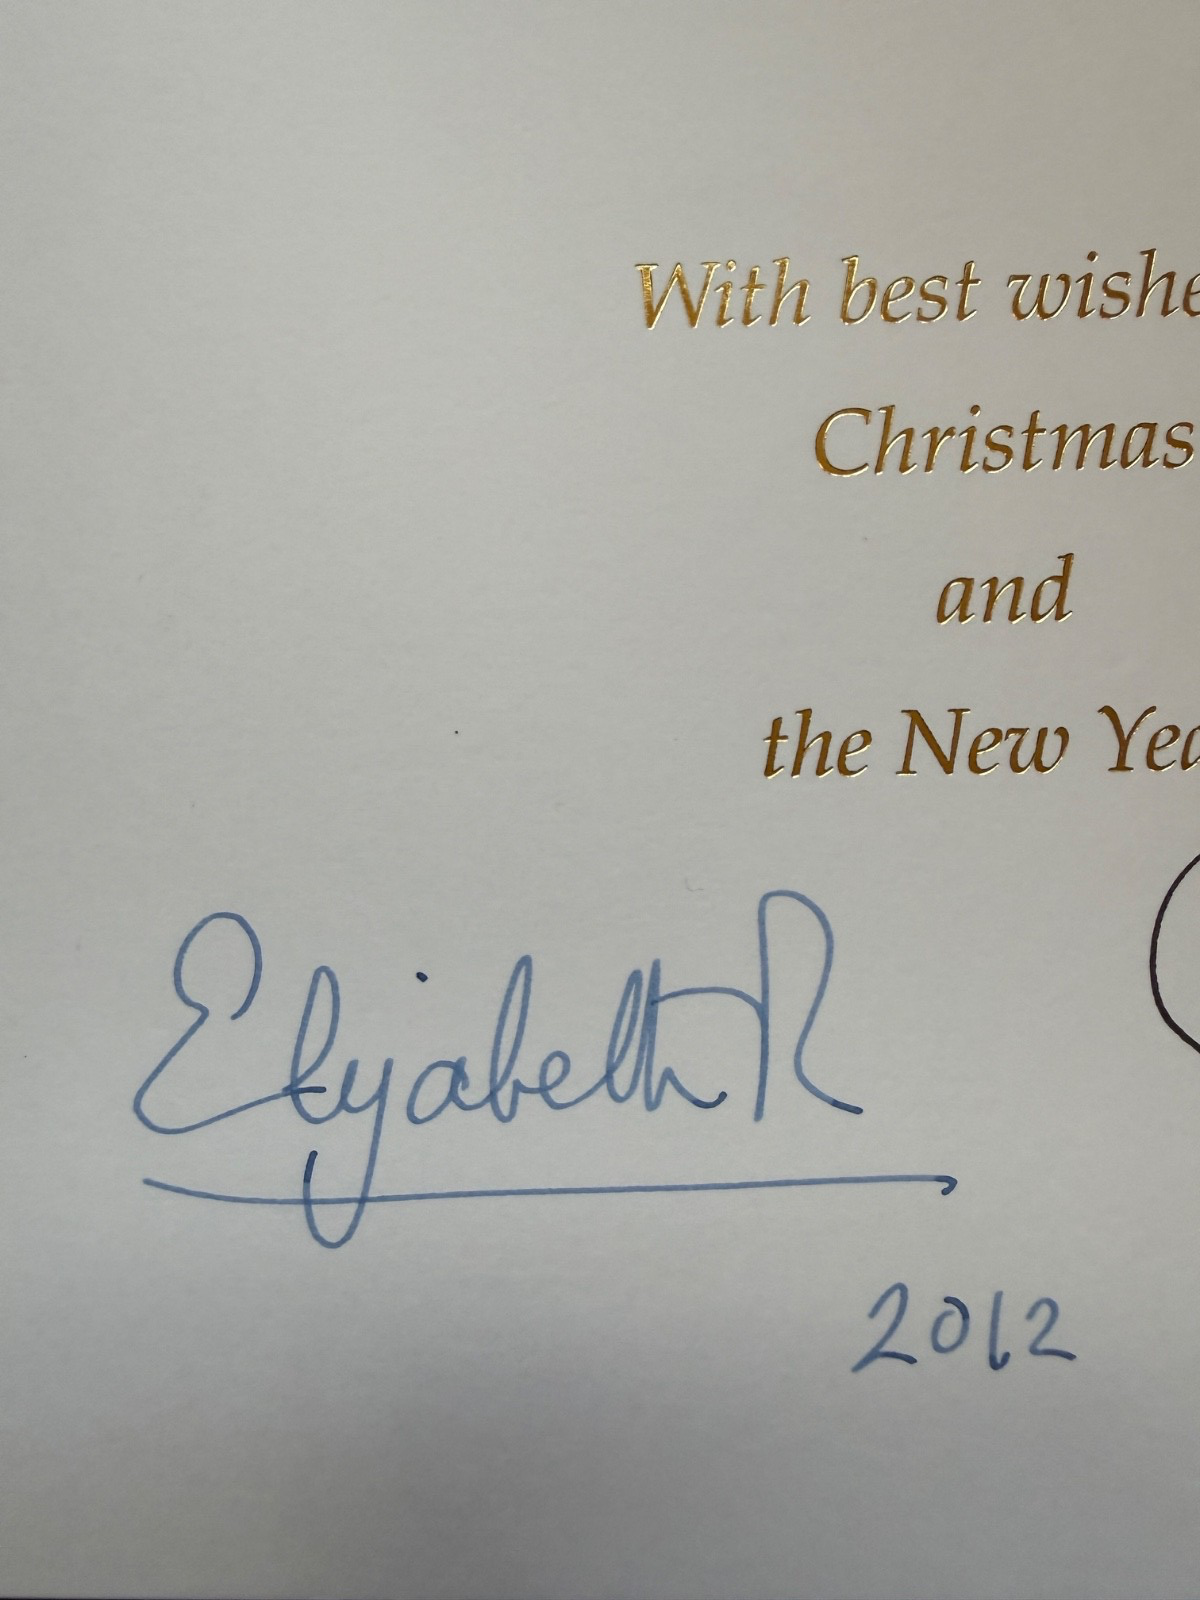 With best wishe
Christmas
and
the New Yea
Elizabeth R
2012